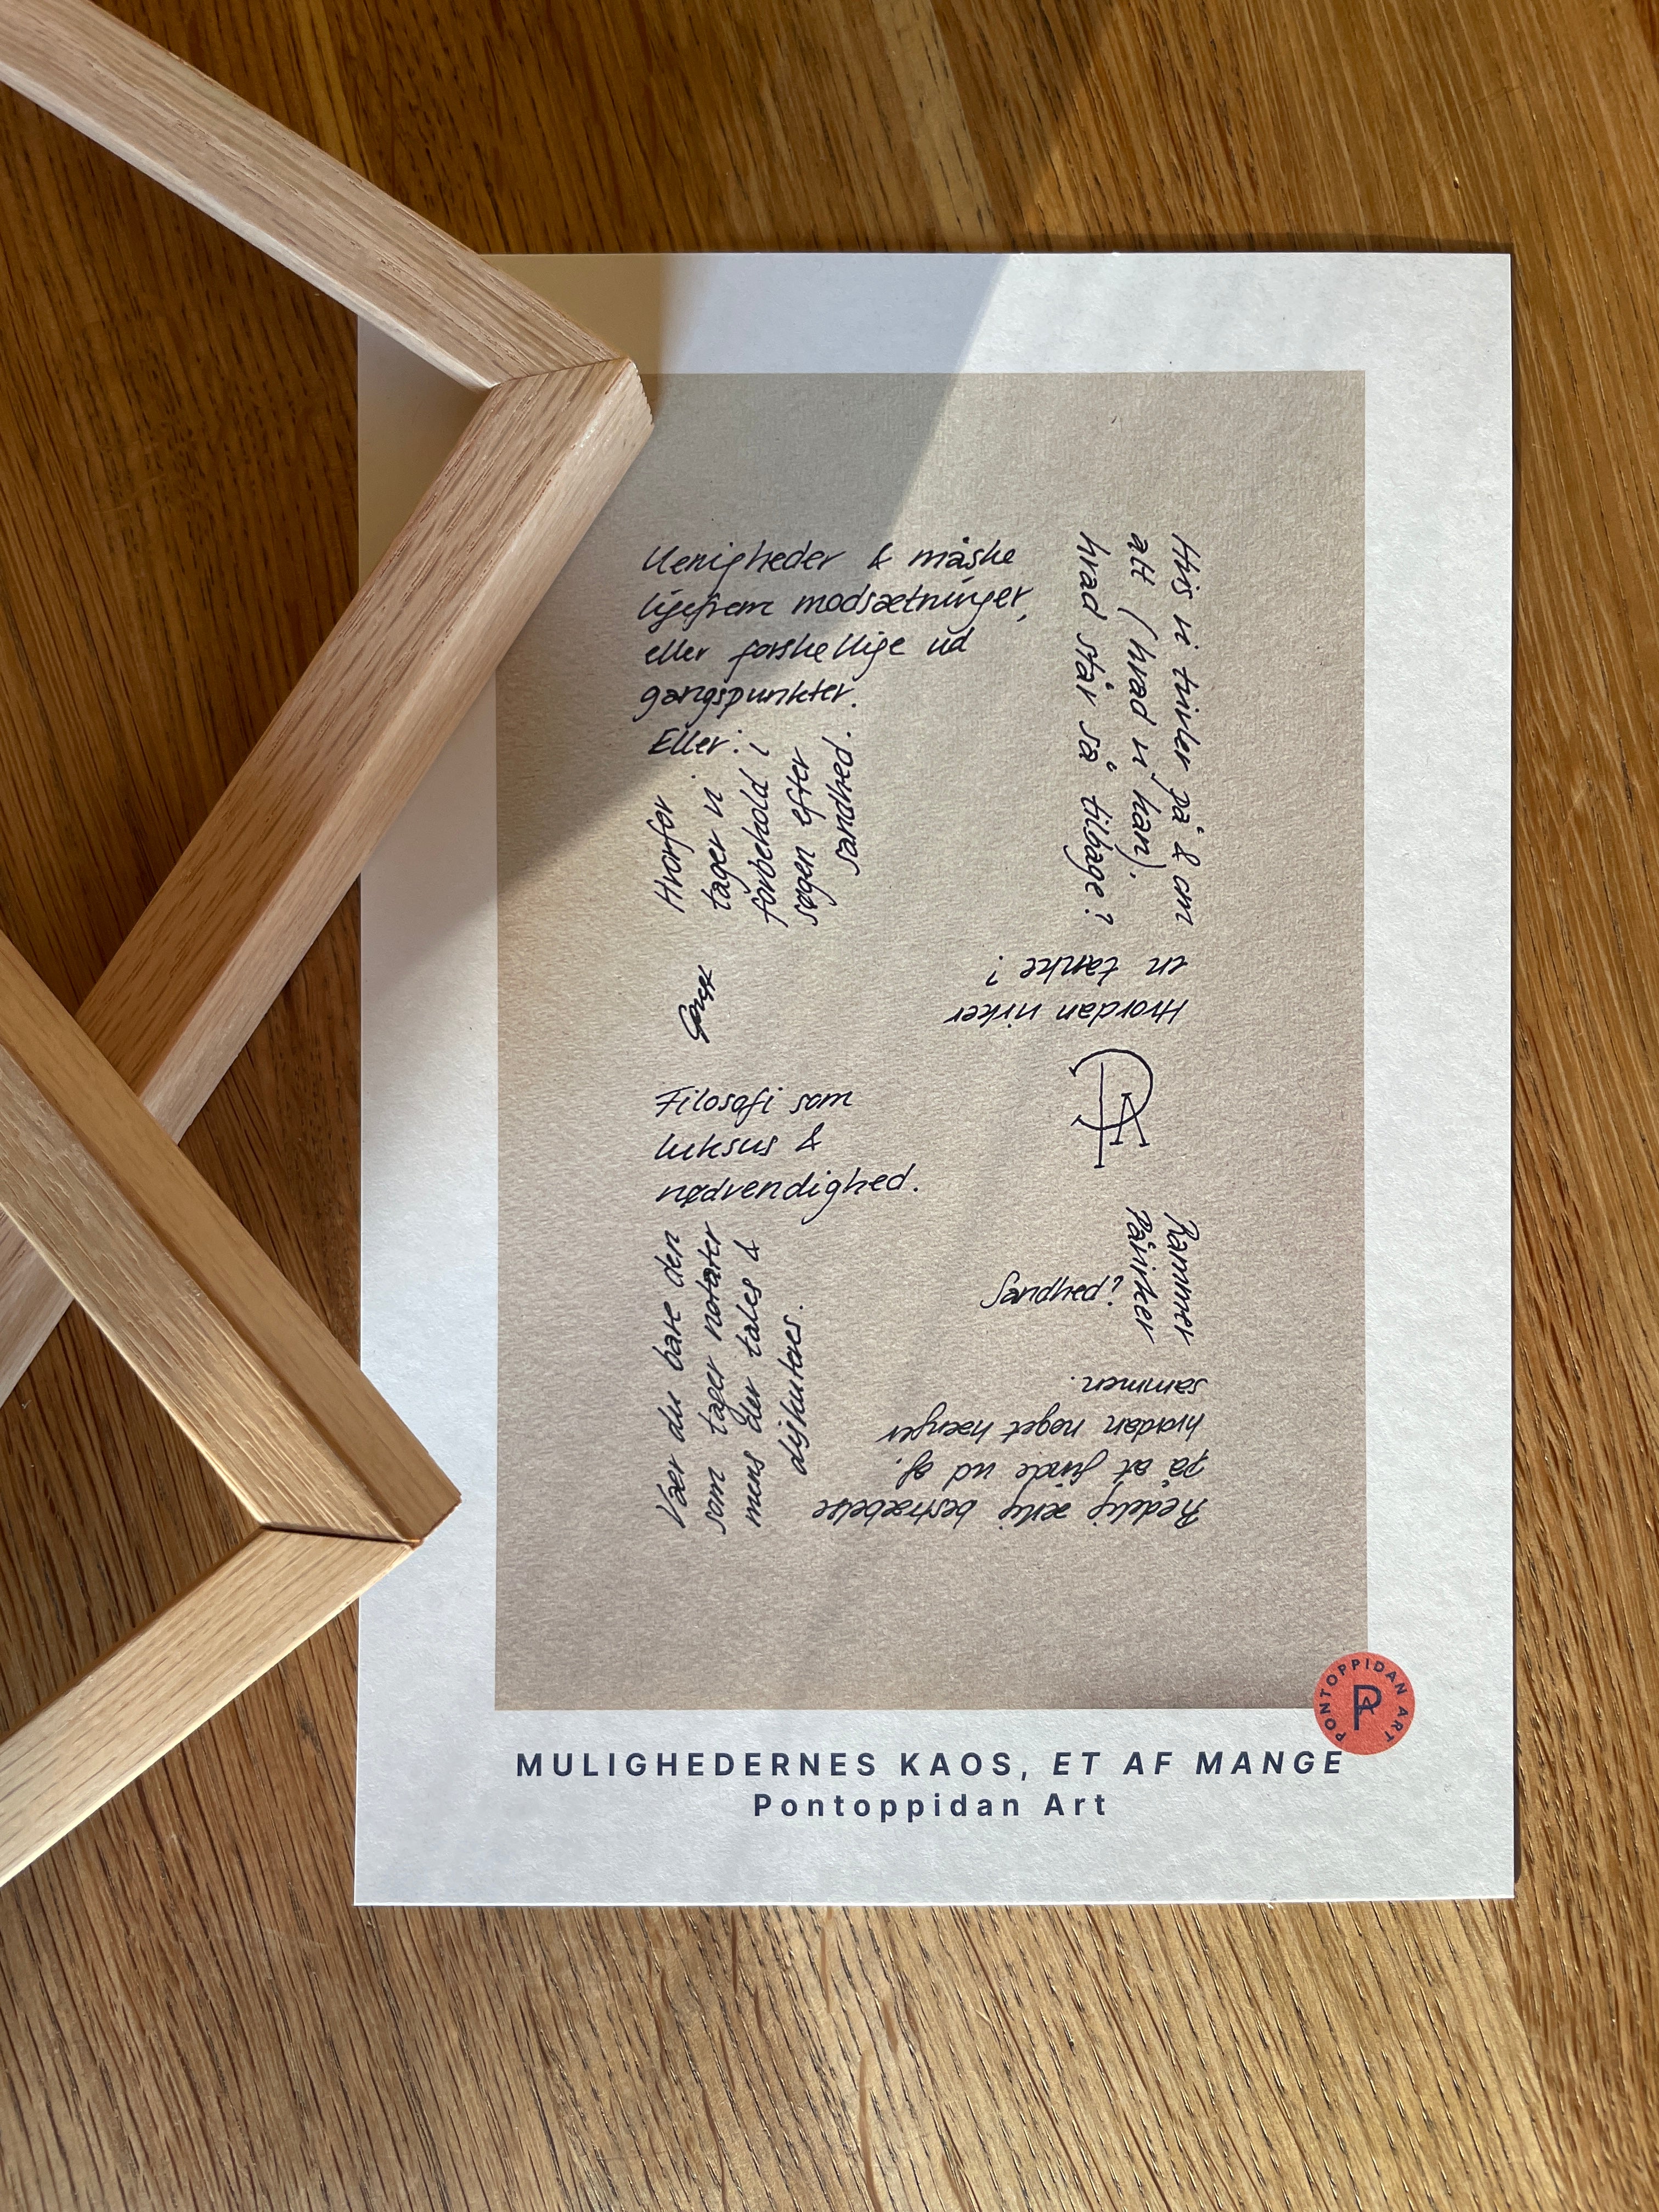 Uenigheder & måske
ligefrem modsætninger,
eller forskellige ud
gangspunkter.
Eller:
Hvorfor
tager vi
forbehold i
søgen efter
sandhed.
Hvis vi tvivler på & om
alt (hvad vi kan).
hvad står så tilbage?
Hvordan virker
en tanke?
Filosofi som
luksus &
nødvendighed.
Vær du bare den
som tager notater
mens der tales &
diskuteres.
Rammer
Påvirker
Sandhed?
Redelig ærlig bestræbelse
på at finde ud af.
hvordan noget hænger
sammen.
PONTOPPIDAN ART
PA
MULIGHEDERNES KAOS, ET AF MANGE
Pontoppidan Art